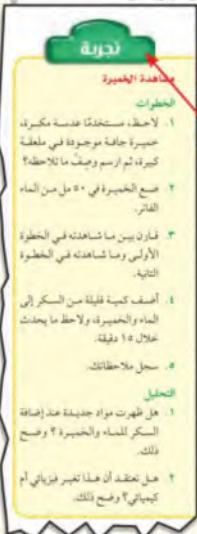 تجربة
مشاهدة الخميرة
الخطوات
١. لاحظ، مستخدمًا عدسة مكبرة،
خميرة جافة موجودة في ملعقة
كبيرة، ثم ارسم وصِفْ ما تلاحظه؟
٢ ضع الخميرة في ٥٠ مل من الماء
الفاتر.
٣ قارن بين ما شاهدته في الخطوة
الأولى وما شاهدته في الخطوة
الثانية.
٤. أضف كمية قليلة من السكر إلى
الماء والخميرة، ولاحظ ما يحدث
خلال ١٥ دقيقة.
٥. سجل ملاحظاتك.
التحليل
١ هل ظهرت مواد جديدة عند إضافة
السكر للماء والخميرة ؟ وضح
ذلك.
٢ هل تعتقد أن هذا تغير فيزيائي أم
كيميائي؟ وضح ذلك.